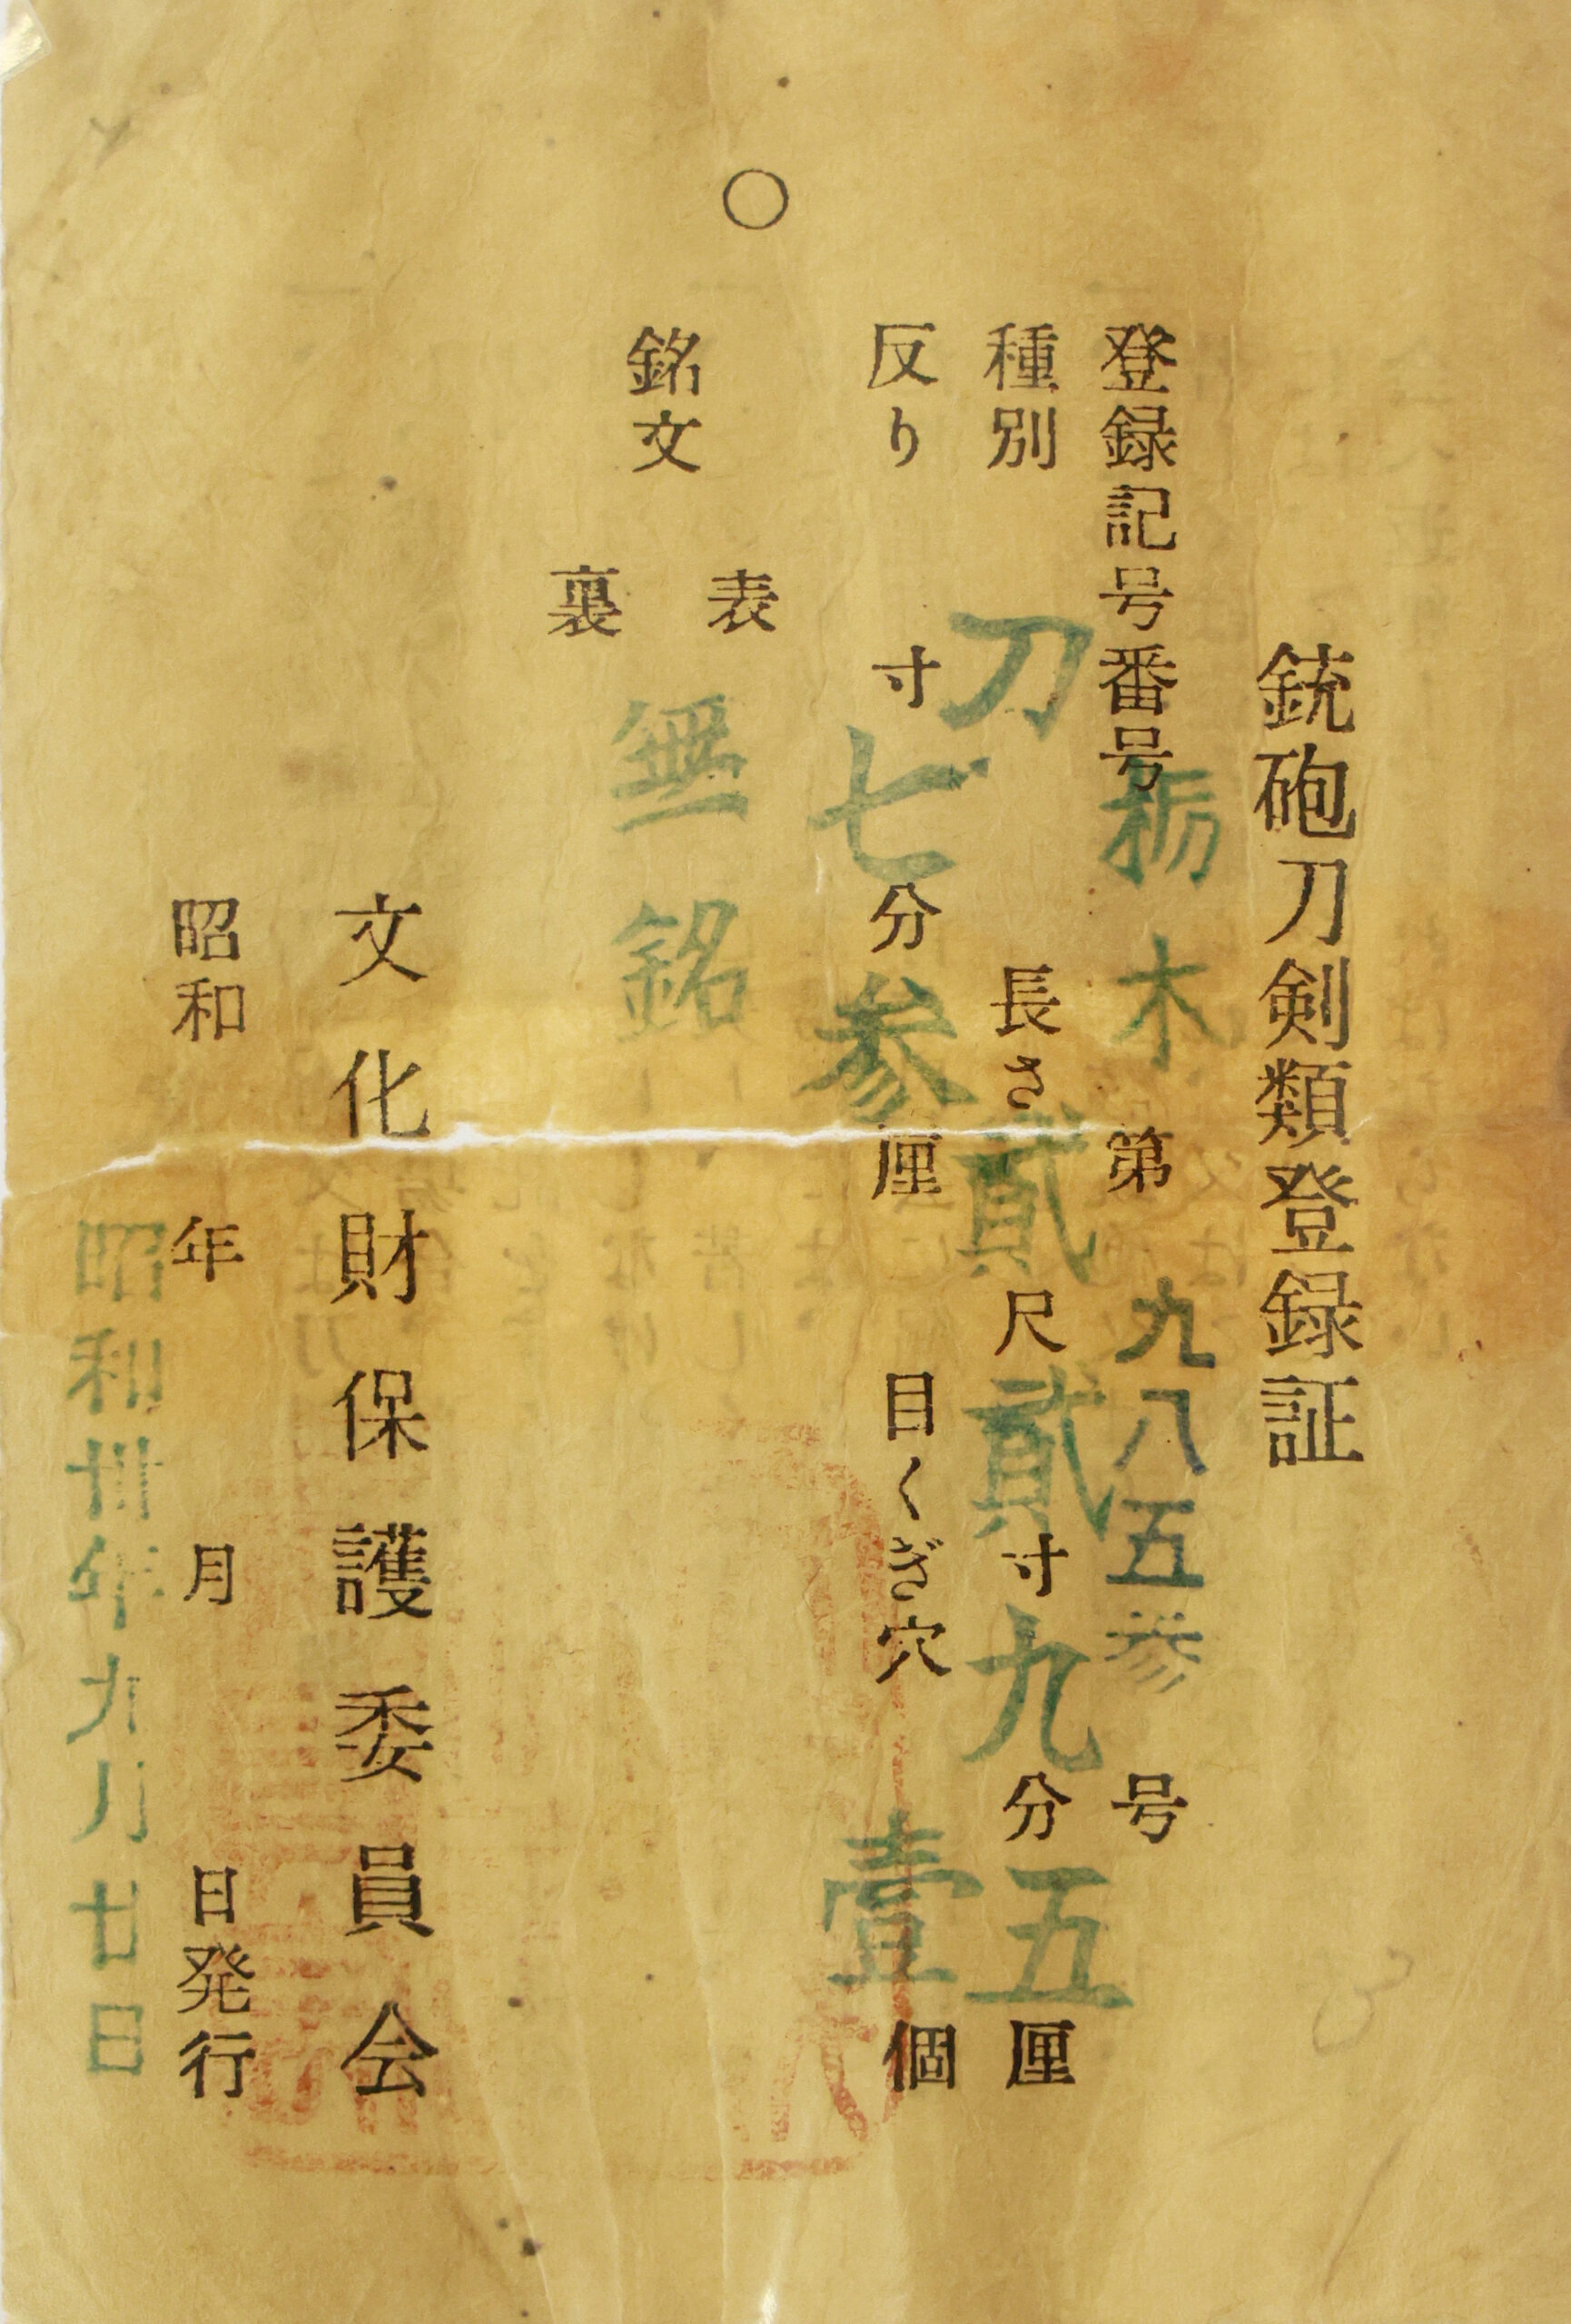 銃砲刀剣類登録証
登録記号番号 栃木 第 九八五参 号
種別 刀 長さ 貳尺貳寸九分五厘
反り 寸七分参厘 目くぎ穴 壹個
○
銘文 表 裏 無銘
文化財保護委員会
昭和 年 月 日発行
昭和卅年九月廿日